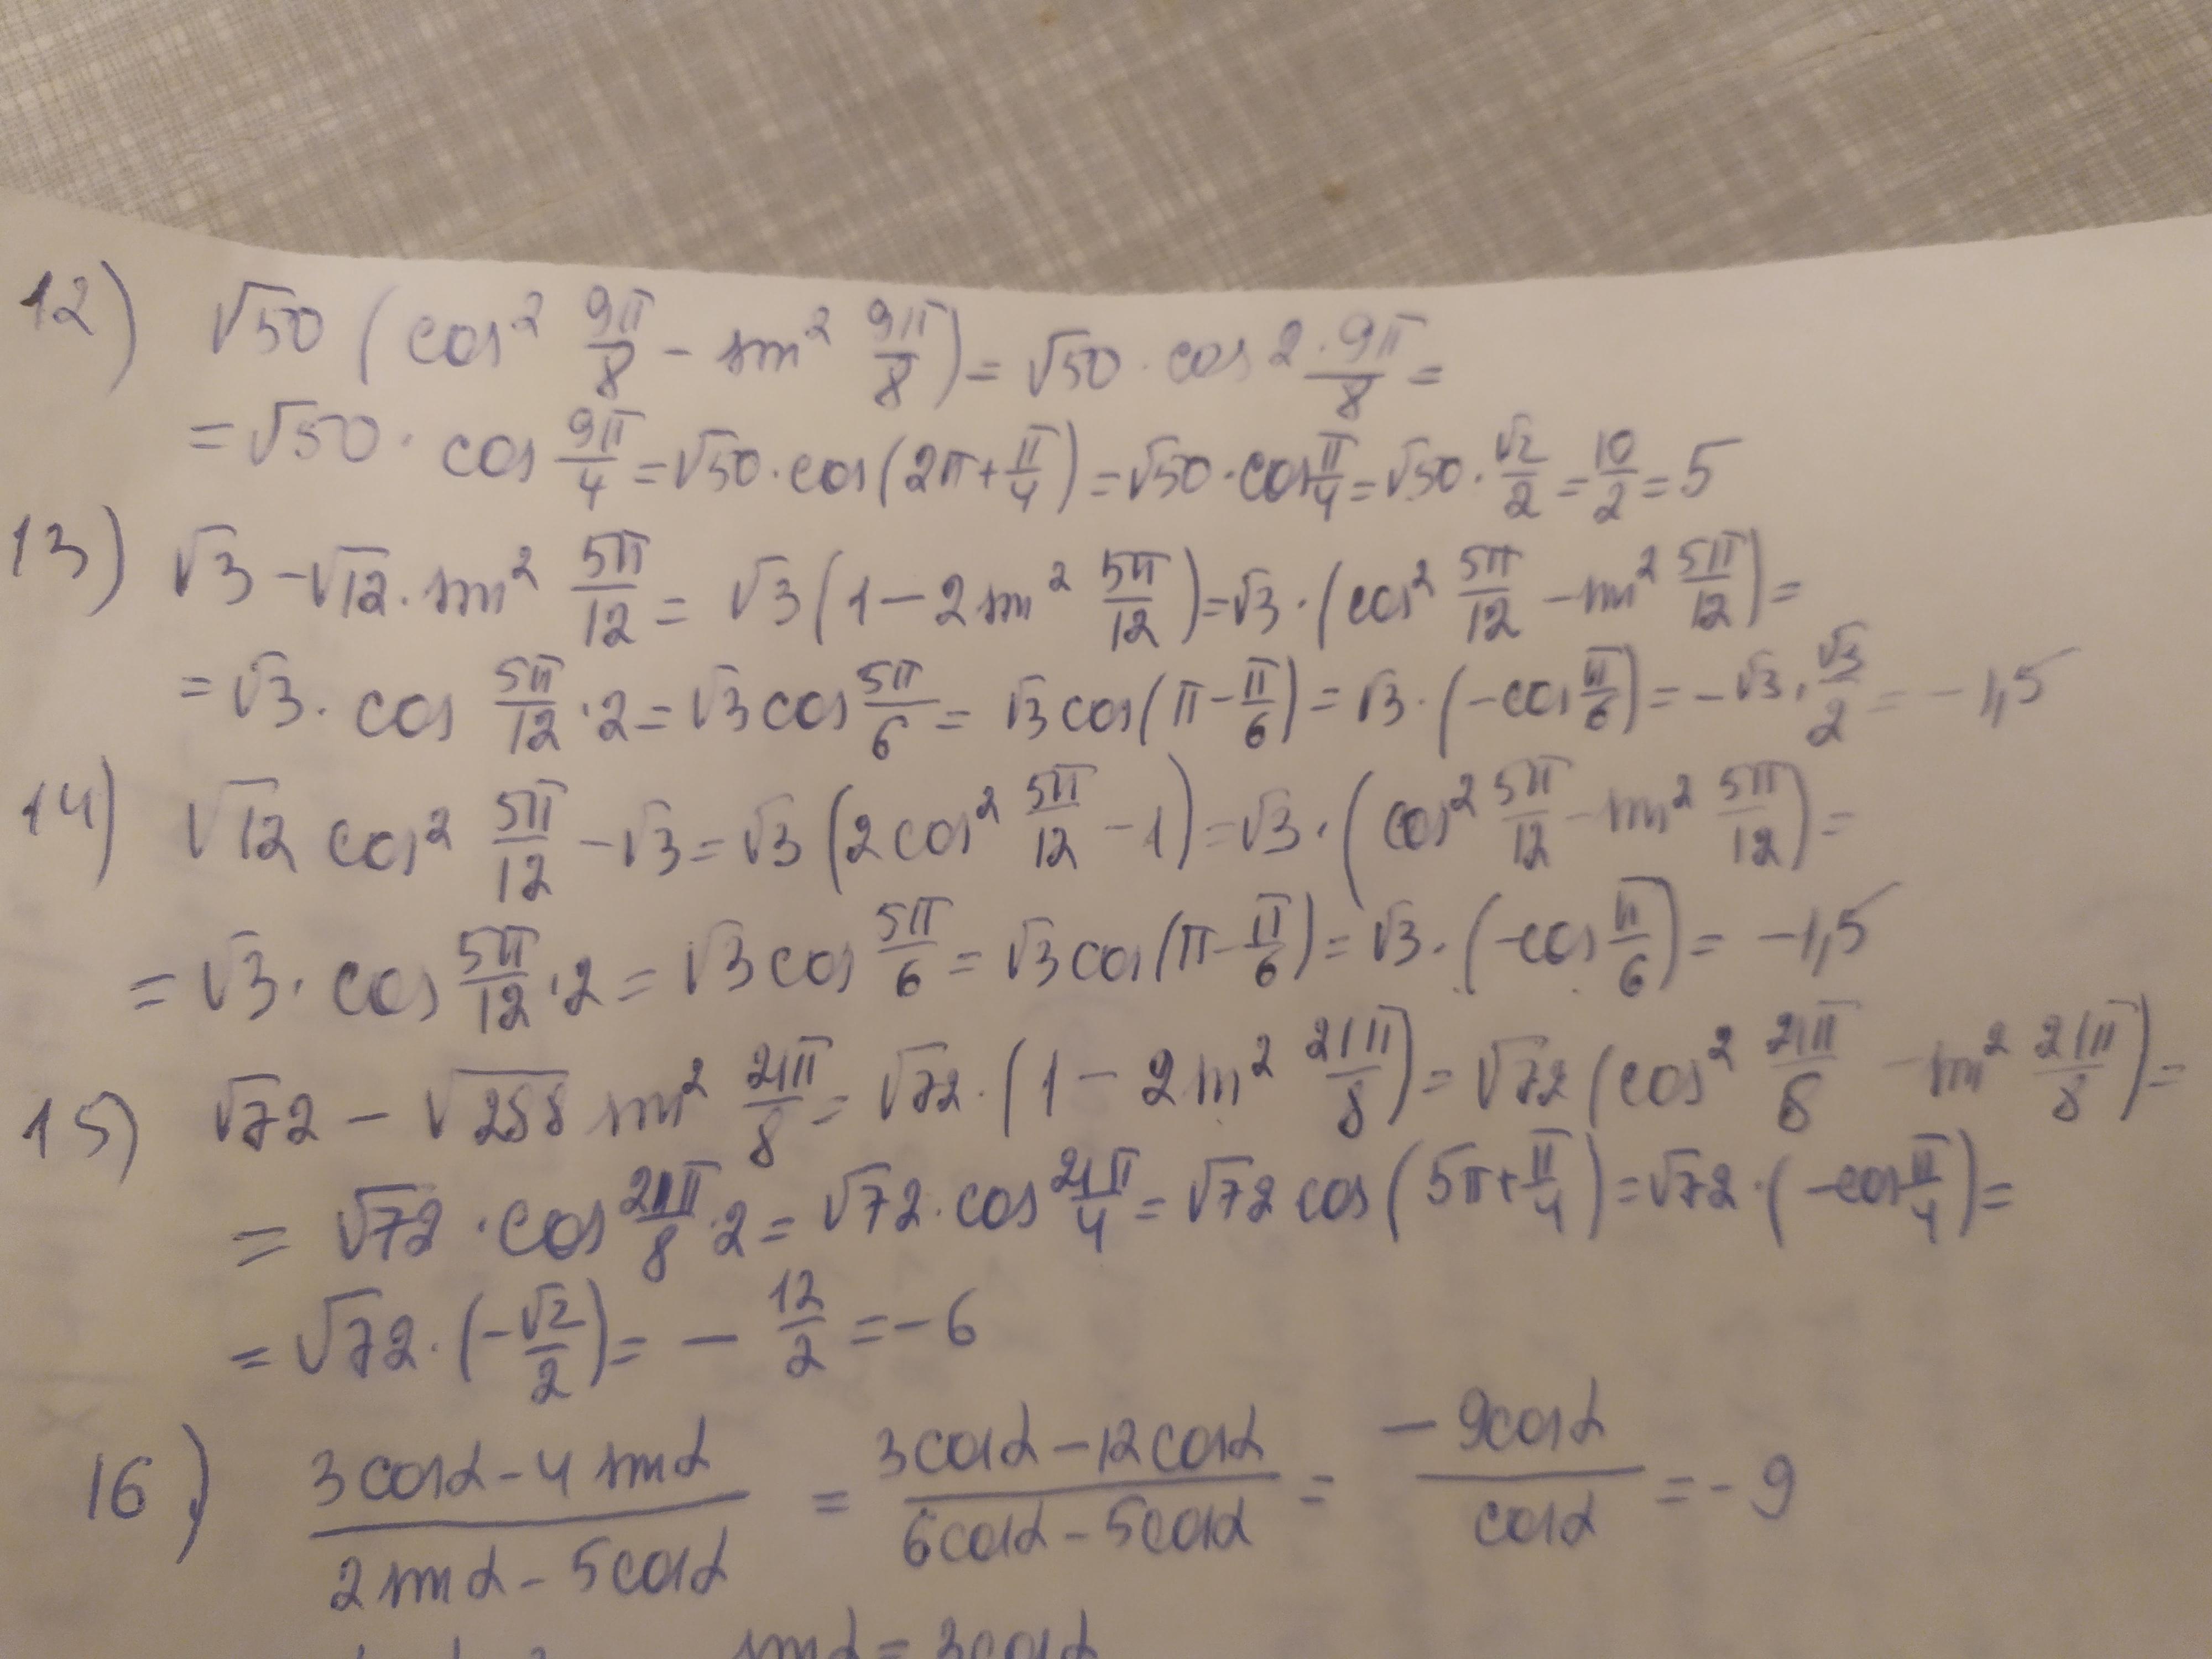 12) √50 (cos² 9π/8 - sin² 9π/8) = √50 · cos 2·9π/8 =
= √50 · cos 9π/4 = √50 · cos(2π + π/4) = √50 · cos π/4 = √50 · √2/2 = 10/2 = 5
13) √3 - √12 · sin² 5π/12 = √3 (1 - 2 sin² 5π/12) = √3 · (cos² 5π/12 - sin² 5π/12) =
= √3 · cos 5π/12 · 2 = √3 cos 5π/6 = √3 cos(π - π/6) = √3 · (-cos π/6) = -√3 · √3/2 = -1,5
14) √12 cos² 5π/12 - √3 = √3 (2cos² 5π/12 - 1) = √3 · (cos² 5π/12 - sin² 5π/12) =
= √3 · cos 5π/12 · 2 = √3 cos 5π/6 = √3 cos(π - π/6) = √3 · (-cos π/6) = -1,5
15) √72 - √288 sin² 21π/8 = √72 · (1 - 2 sin² 21π/8) = √72 (cos² 21π/8 - sin² 21π/8) =
= √72 · cos 21π/8 · 2 = √72 · cos 21π/4 = √72 cos(5π + π/4) = √72 · (-cos π/4) =
= √72 · (-√2/2) = - 12/2 = -6
16) (3cosα - 4 sinα)/(2 sinα - 5cosα) = (3cosα - 12cosα)/(6cosα - 5cosα) = (-9cosα)/(cosα) = -9
sinα = 3cosα